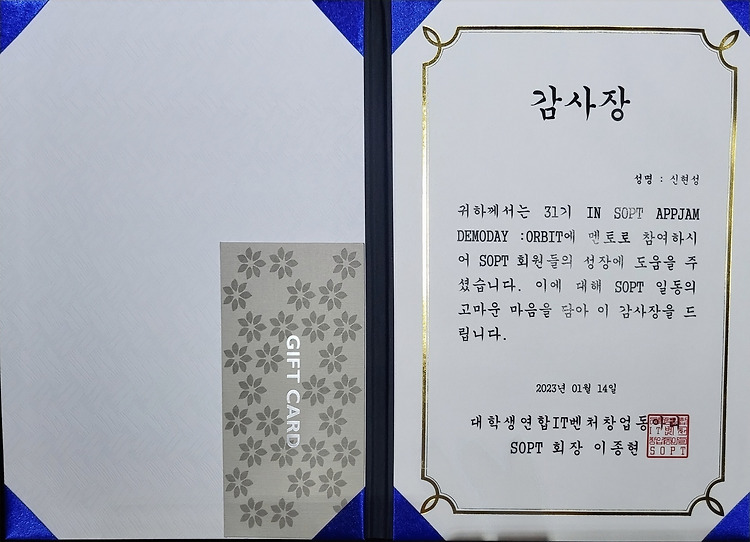 GIFT CARD
감사장
성명 : 신현성
귀하께서는 31기 IN SOPT APPJAM
DEMODAY :ORBIT에 멘토로 참여하시
어 SOPT 회원들의 성장에 도움을 주
셨습니다. 이에 대해 SOPT 일동의
고마운 마음을 담아 이 감사장을 드
립니다.
2023년 01월 14일
대학생연합IT벤처창업동아리
SOPT 회장 이종현
SOPT